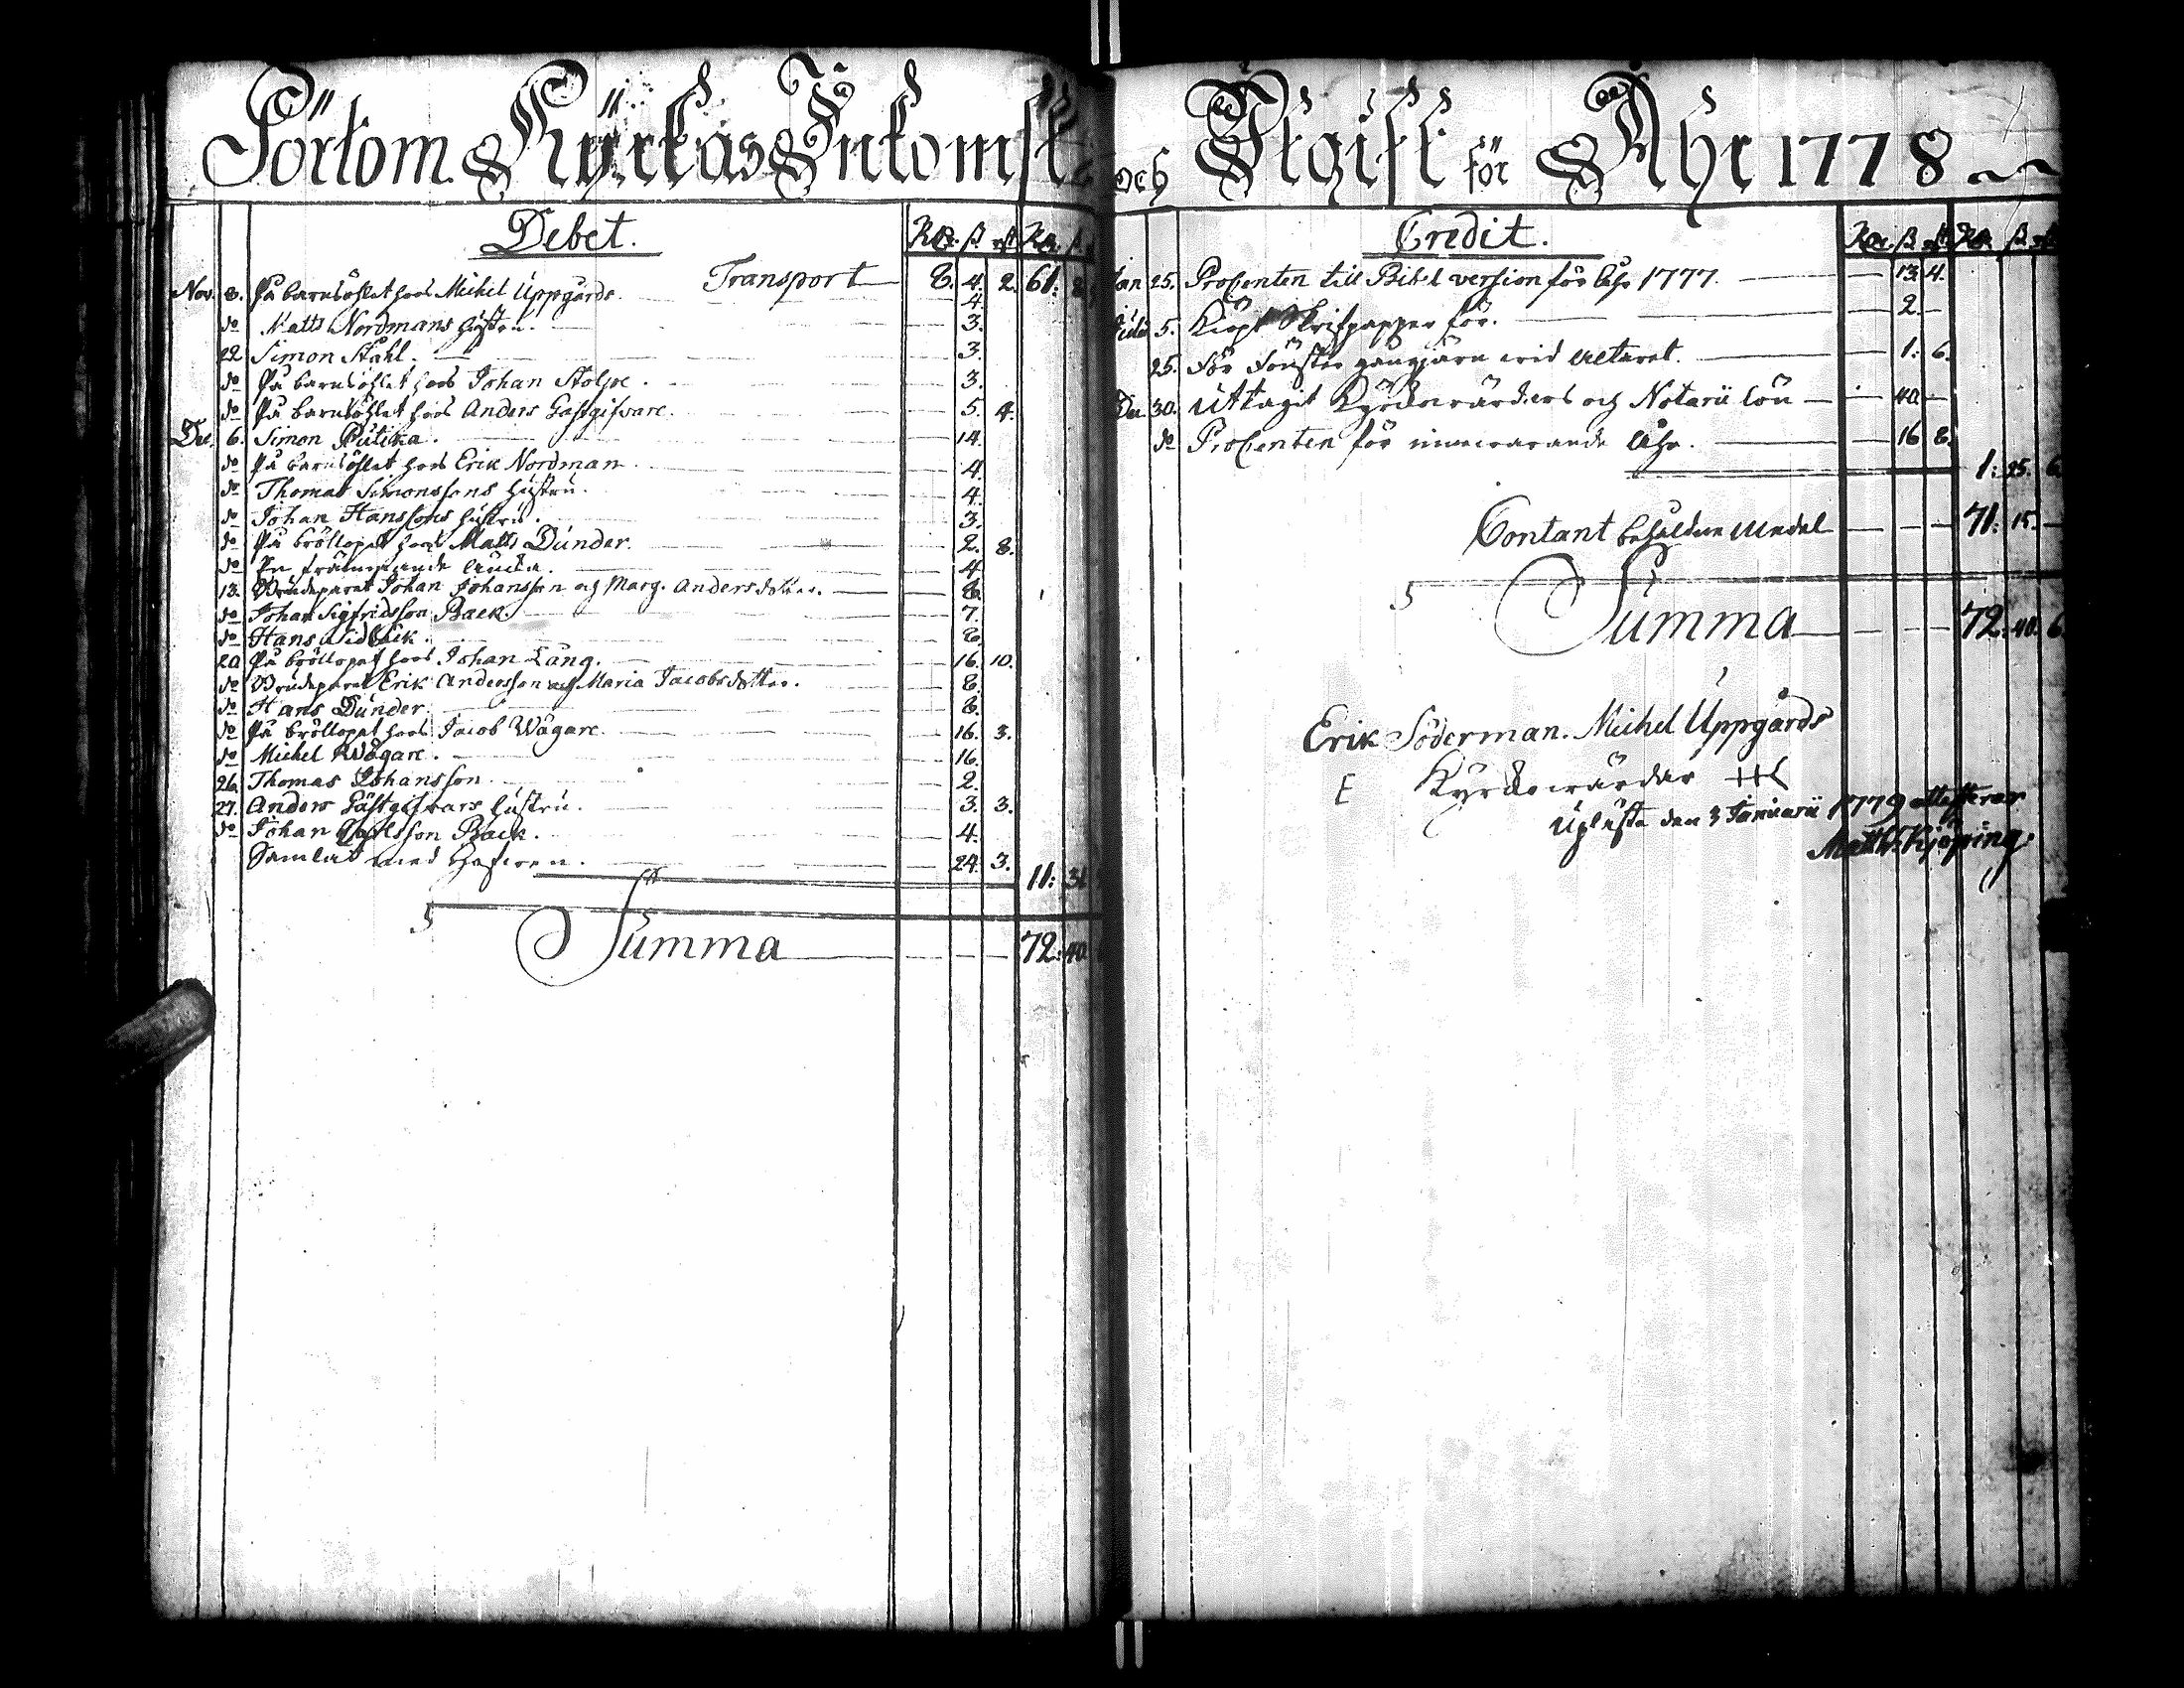 Pörtom Kyrkas Inkomst
Debet. Rdr. ß. rst. Rdr. ß.
Transport 8. 4. 2. 61:
Nov. 8. På barnsöhlet hos Michel Uppgårds 4.
do Matts Nordmans hustru. 3.
22 Simon Ståhl. 3.
do På barnsöhlet hos Johan Stolpe. 3.
do På barnsöhlet hos Anders Gästgifvare. 5. 4.
Dec. 6. Simon Rutika. 14.
do På barnsöhlet hos Erik Nordman. 4.
do Thomas Simonssons hustru. 4.
do Johan Hanssons hustru. 3.
do På bröllopet hos Matts Dunder. 2. 8.
do En främmande 4
13. Brudeparet Johan Johansson och Marg. Andersdotter. 8.
do Johan Sigfridsson Back. 7.
do Hans 8.
20 På bröllopet hos Johan Lång. 16. 10.
do Brudeparet Erik Andersson och Maria Jacobsdotter. 8.
do Hans Dunder. 8.
do På bröllopet hos Jacob Wägare. 16. 3.
do Michel Wägare. 16.
26. Thomas Johansson. 2.
27. Anders Gästgifvars hustru. 3. 3.
do Johan Back. 4.
Samlat med Hafwen. 24. 3.
11: 31
Summa 72: 40.
och Utgift för Åhr 1778
Credit. Rdr. ß. rst. Rdr. ß. rst.
Jan 25. Procenten till Bibel version för Åhr 1777. 13. 4.
5. Kiöpt Skrifpapper för. 2.
25. För Fönster gångjärn wid Altaret. 1: 6.
Dec. 30. Uttagit Kyrkowärdens och Notarii lön 40
do Procenten för innewarande Åhr. 16 8.
1: 25. 6
Contant behåldne Medel 71: 15.
Summa 72: 40. 6
Erik Söderman. Michel Uppgårds
E Kyrkowärdar
Upläste den 3 Januarii 1779 attesterar
Matth: Kjöping